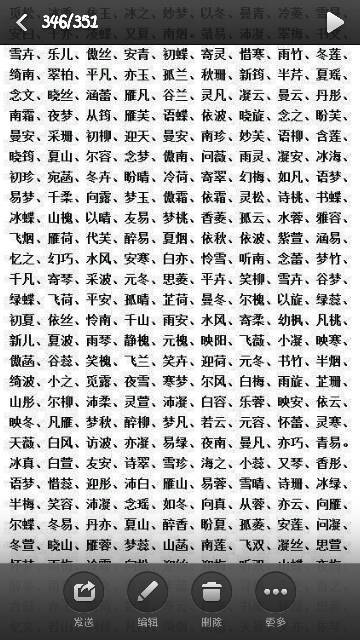 346/351
雪卉、乐儿、傲丝、安青、初蝶、寄灵、惜寒、雨竹、冬莲、
绮南、翠柏、平凡、亦玉、孤兰、秋珊、新筠、半芹、夏瑶、
念文、晓丝、涵蕾、雁凡、谷兰、灵凡、凝云、曼云、丹彤、
南霜、夜梦、从筠、雁芙、语蝶、依波、晓旋、念之、盼芙、
曼安、采珊、初柳、迎天、曼安、南珍、妙芙、语柳、含莲、
晓筠、夏山、尔容、念梦、傲南、问薇、雨灵、凝安、冰海、
初珍、宛菡、冬卉、盼晴、冷荷、寄翠、幻梅、如凡、语梦、
易梦、千柔、向露、梦玉、傲霜、依霜、灵松、诗桃、书蝶、
冰蝶、山槐、以晴、友易、梦桃、香菱、孤云、水蓉、雅容、
飞烟、雁荷、代芙、醉易、夏烟、依秋、依波、紫萱、涵易、
忆之、幻巧、水风、安寒、白亦、怜雪、听南、念蕾、梦竹、
千凡、寄琴、采波、元冬、思菱、平卉、笑柳、雪卉、谷梦、
绿蝶、飞荷、平安、孤晴、芷荷、曼冬、尔槐、以旋、绿蕊、
初夏、依丝、怜南、千山、雨安、水风、寄柔、幼枫、凡桃、
新儿、夏波、雨琴、静槐、元槐、映阳、飞薇、小凝、映寒、
傲菡、谷蕊、笑槐、飞兰、笑卉、迎荷、元冬、书竹、半烟、
绮波、小之、觅露、夜雪、寒梦、尔风、白梅、雨旋、芷珊、
山彤、尔柳、沛柔、灵萱、沛凝、白容、乐蓉、映安、依云、
映冬、凡雁、梦秋、醉柳、梦凡、若云、元容、怀蕾、灵寒、
天薇、白风、访波、亦凝、易绿、夜南、曼凡、亦巧、青易。
冰真、白萱、友安、诗翠、雪珍、海之、小蕊、又琴、香彤、
语梦、惜蕊、迎彤、沛白、雁山、易蓉、雪晴、诗珊、冰绿、
半梅、笑容、沛凝、念瑶、如冬、向真、从蓉、亦云、向雁、
尔蝶、冬易、丹亦、夏山、醉香、盼夏、孤菱、安莲、问凝、
冬萱、晓山、雁蓉、梦蕊、山菡、南莲、飞双、凝丝、思萱、
发送 编辑 删除 更多